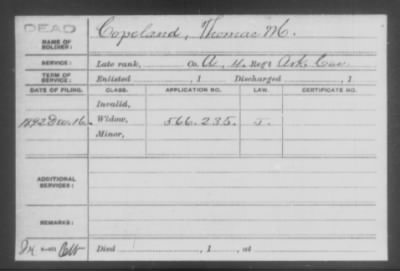 DEAD
NAME OF SOLDIER: Copeland, Thomas M.
SERVICE: Late rank, Co. A, 4. Reg't Ark Cav.
TERM OF SERVICE: Enlisted , 1 Discharged , 1
DATE OF FILING. CLASS. APPLICATION NO. LAW. CERTIFICATE NO.
Invalid,
1892 Dec. 16. Widow, 566.235. J.
Minor,
ADDITIONAL SERVICES:
REMARKS:
Died , 1 , at